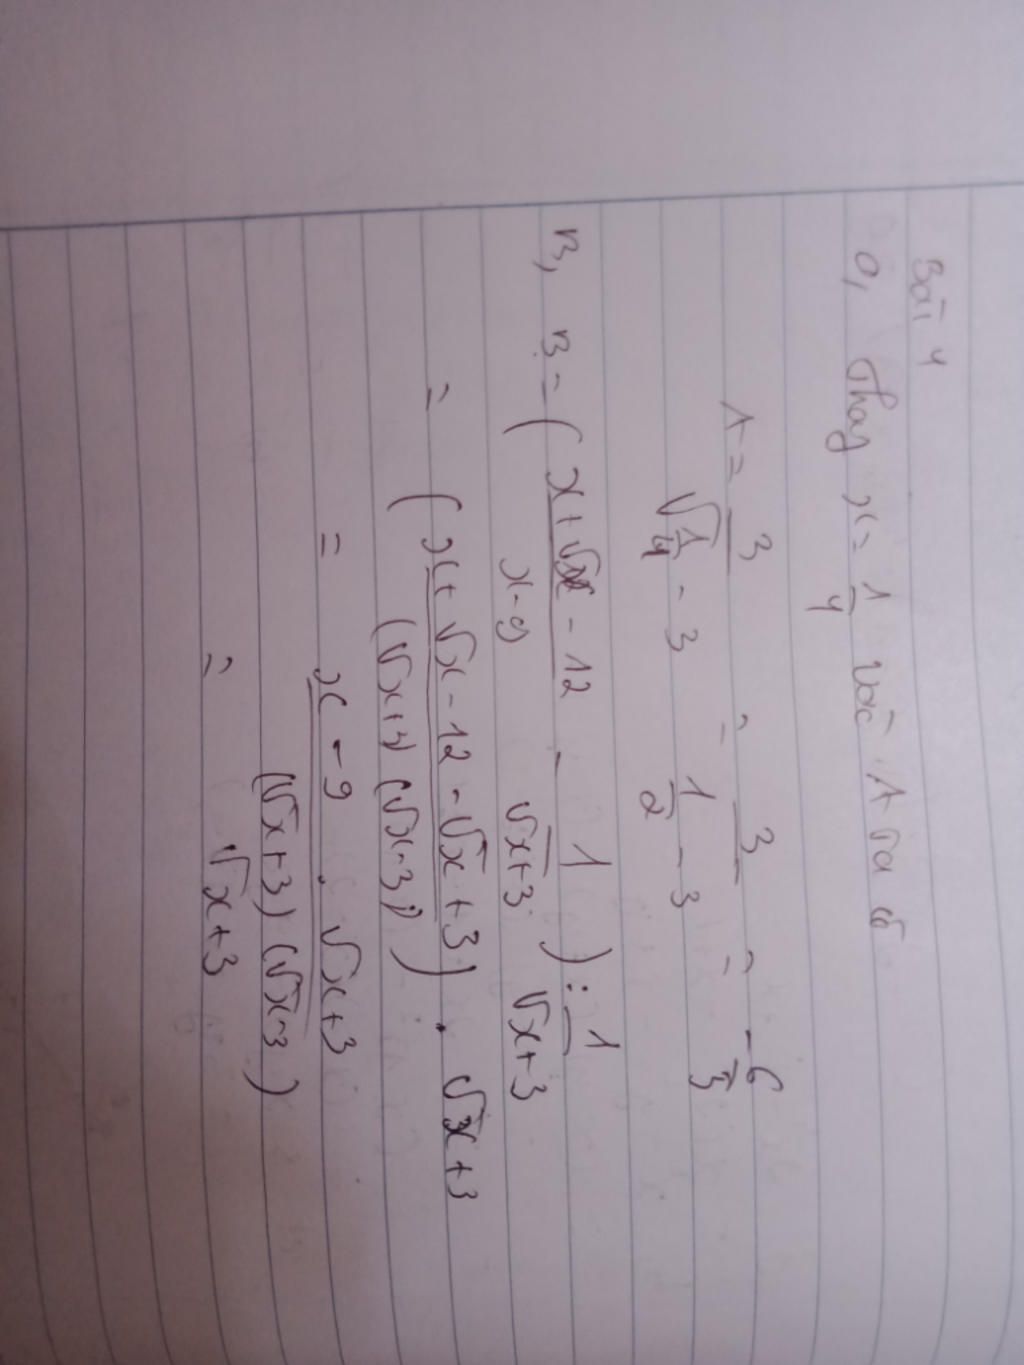 Bài 4
a, Thay x = 1/4 vào A ta có
A = 3/(√(1/4) - 3) = 3/(1/2 - 3) = -6/5
B, B = (x+√x - 12/x-9 - 1/√x+3) : 1/√x+3
= (x+√x-12-√x+3/(√x+3)(√x-3)) . √x+3
= x-9/(√x+3)(√x-3) . √x+3
= √x+3